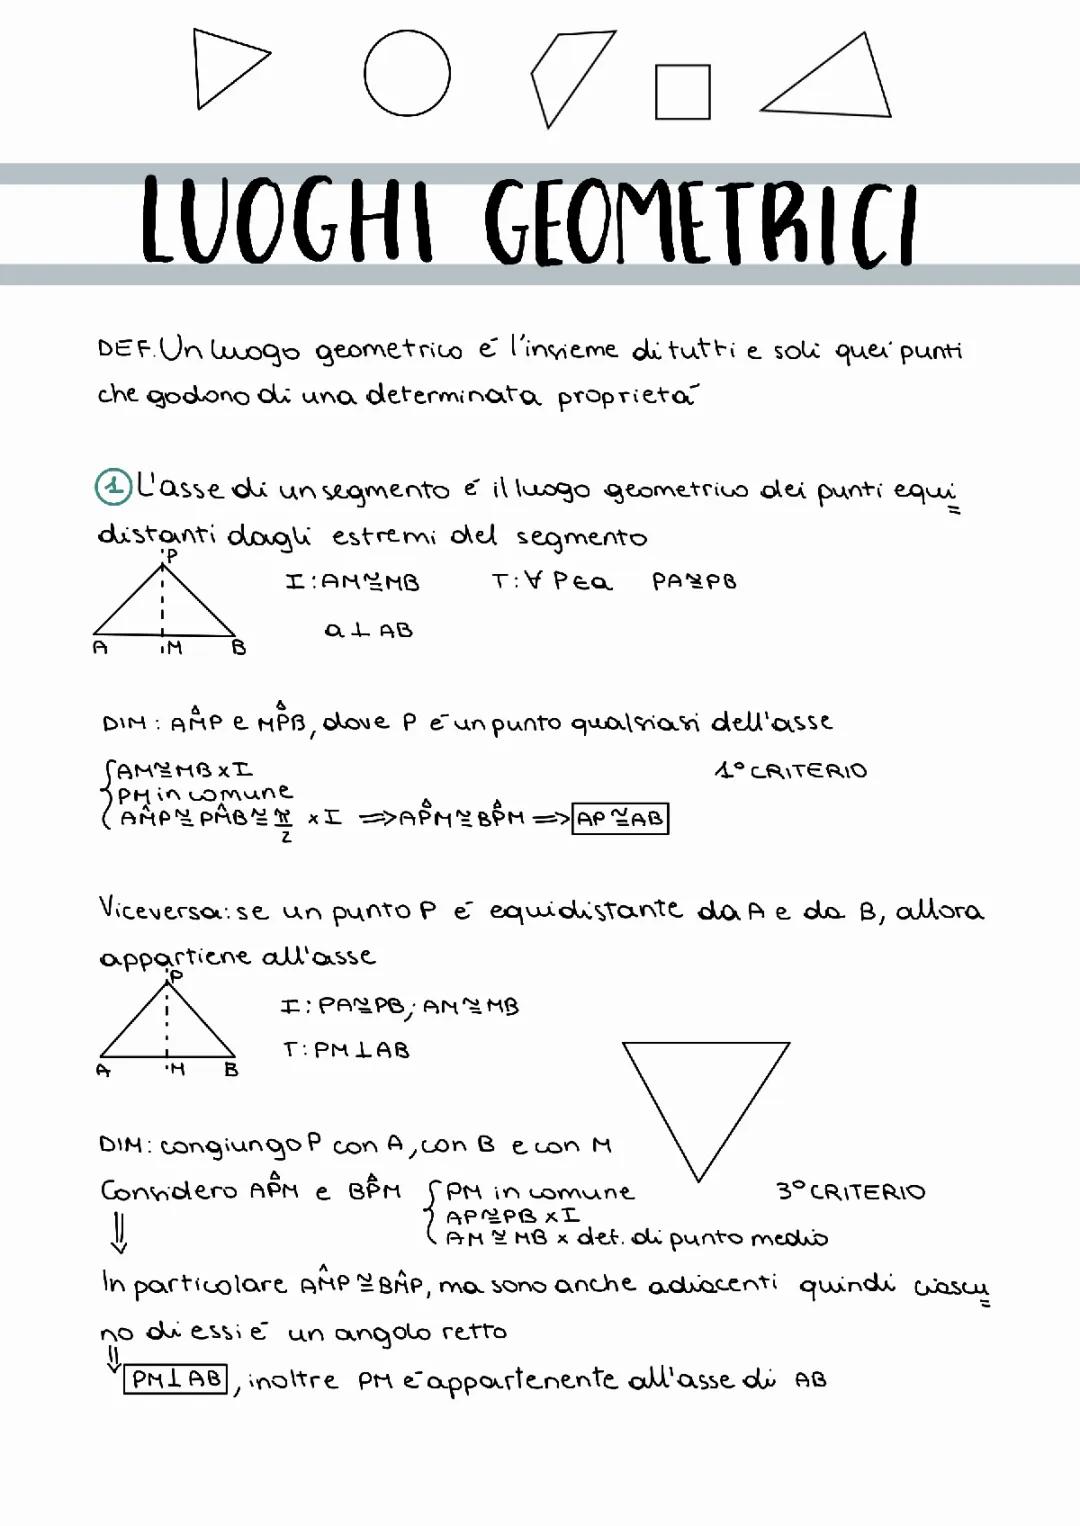 LUOGHI GEOMETRICI
DEF. Un luogo geometrico é l'insieme di tutti e soli quei punti
che godono di una determinata proprietá
1 L'asse di un segmento é il luogo geometrico dei punti equi
distanti dagli estremi del segmento
P
I: AM≅MB T: ∀ P∈a PA≅PB
a ⊥ AB
A M B
DIM: AM̂P e MP̂B, dove P é un punto qualsiasi dell'asse
AM≅MB x I 1° CRITERIO
PM in comune
AM̂P≅PM̂B≅π/2 x I ⇒ AP̂M≅BP̂M ⇒ AP≅AB
Viceversa: se un punto P é equidistante da A e da B, allora
appartiene all'asse
P
I: PA≅PB; AM≅MB
T: PM⊥AB
A M B
DIM: congiungo P con A, con B e con M
Considero AP̂M e BP̂M PM in comune 3° CRITERIO
AP≅PB x I
⇓ AM≅MB x def. di punto medio
In particolare AM̂P≅BM̂P, ma sono anche adiacenti quindi ciascu
no di essi é un angolo retto
⇓ PM⊥AB, inoltre PM é appartenente all'asse di AB